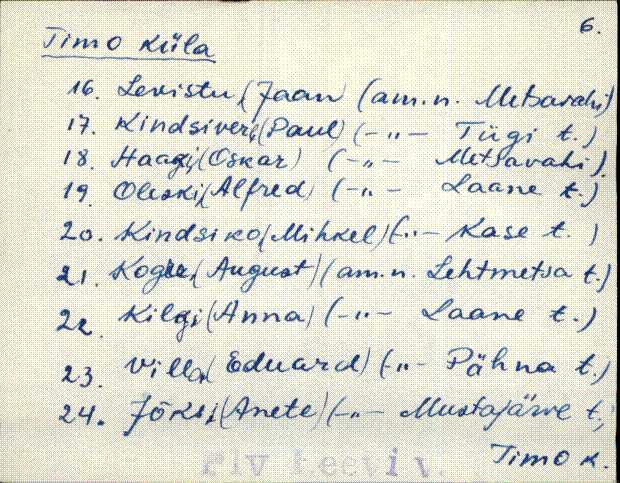 6.
Timo küla
16. Levistu, (Jaan) (am.n. Metsavahi)
17. Kindsiver, (Paul) (-„- Tügi t.)
18. Haagi, (Oskar) (-„- Metsavahi)
19. Oleski, (Alfred) (-„- Laane t.)
20. Kindsiko, (Mihkel) (-„- Kase t.)
21. (August) (am.n. Lehtmetsa t.)
22. Kilgi, (Anna) (-„- Laane t.)
23. Villa, (Eduard) (-„- Pähna t.)
24. Jõks, (Anete) (-„- Mustajärve t.)
Timo k.